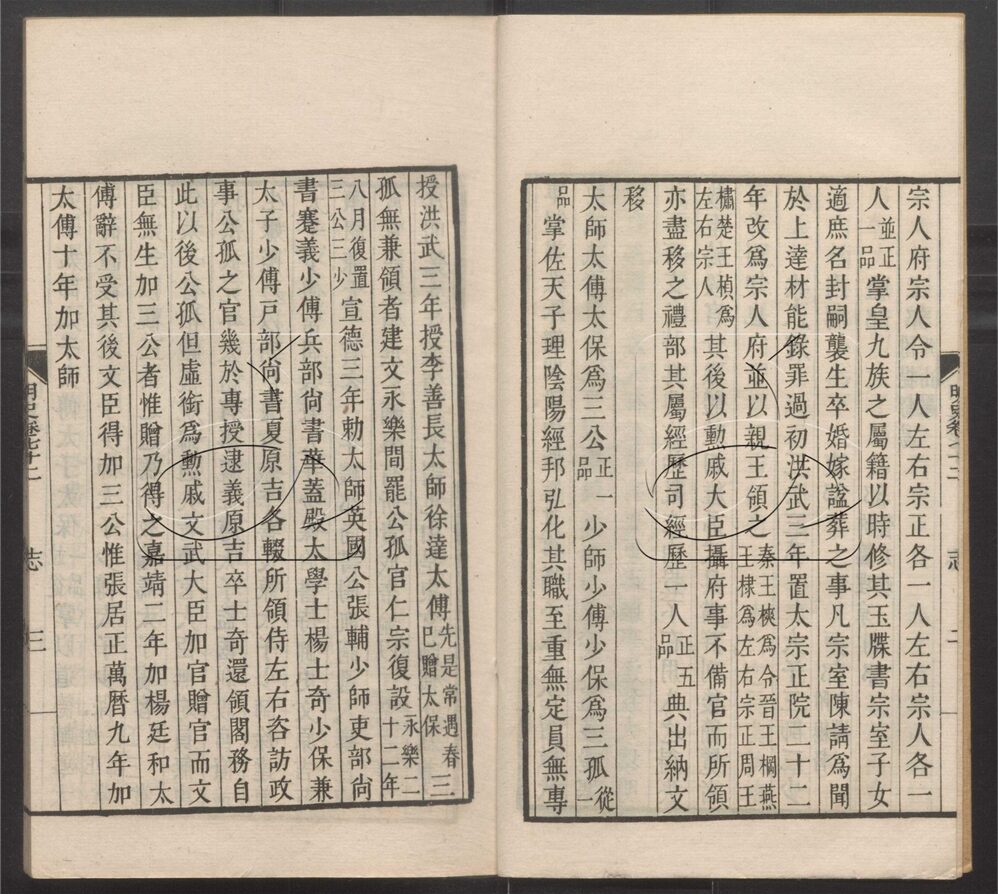 宗人府宗人令一人左右宗正各一人左右宗人各一
人並正一品掌皇九族之屬籍以時修其玉牒書宗室子女
適庶名封嗣襲生卒婚嫁諡葬之事凡宗室陳請爲聞
於上達材能錄罪過初洪武三年置太宗正院二十二
年改爲宗人府並以親王領之秦王樉爲令晉王棡燕王棣爲左右宗正周王
橚楚王楨爲左右宗人其後以勳戚大臣攝府事不備官而所領
亦盡移之禮部其屬經歷司經歷一人正五品典出納文
移
太師太傅太保爲三公正一品少師少傅少保爲三孤從一
品掌佐天子理陰陽經邦弘化其職至重無定員無專
授洪武三年授李善長太師徐達太傅先是常遇春已贈太保三
孤無兼領者建文永樂間罷公孤官仁宗復設永樂二十二年
八月復置三公三少宣德三年勅太師英國公張輔少師吏部尚
書蹇義少傅兵部尚書華蓋殿太學士楊士奇少保兼
太子少傅戶部尚書夏原吉各輟所領侍左右咨訪政
事公孤之官幾於專授逮義原吉卒士奇還領閣務自
此以後公孤但虛銜爲勳戚文武大臣加官贈官而文
臣無生加三公者惟贈乃得之嘉靖二年加楊廷和太
傅辭不受其後文臣得加三公惟張居正萬曆九年加
太傅十年加太師
志
三